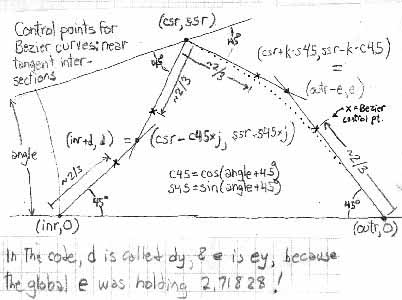 Control points for
Bezier curves; near
tangent inter-
sections
(csr, ssr)
45°
45°
(csr+k-s45, ssr-k-c45)
=
(outr-e, e)
~2/3
~2/3
x = Bezier
control pt.
(inr+d, d) = (csr - c45×j, ssr-s45×j)
angle
~2/3
~2/3
c45 = cos(angle+45°)
s45 = sin(angle+45°)
45°
45°
(inr, 0)
(outr, 0)
In the code, d is called dy, & e is ey, because
the global e was holding 2.71828!